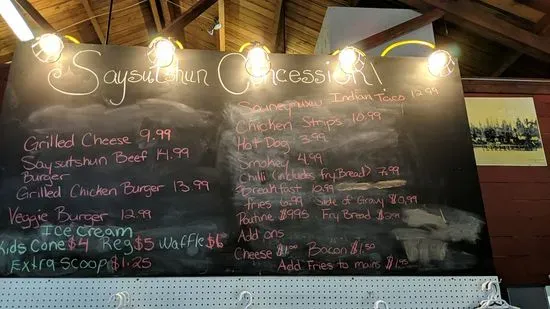 Saysutshun Concession!
Grilled Cheese 9.99
Saysutshun Beef 14.99
Burger
Grilled Chicken Burger 13.99
Veggie Burger 12.99
Ice Cream
Kids Cone $4 Reg $5 Waffle $6
Extra Scoop $1.25
Indian Taco 12.99
Chicken Strips 10.99
Hot Dog 3.99
Smokey 4.99
Chilli (includes fry Bread) 7.99
Breakfast 10.99
Fries 6.99 Side of Gravy $0.99
Poutine $9.95 Fry Bread
Add ons
Cheese $1.00 Bacon $1.50
Add Fries to mains